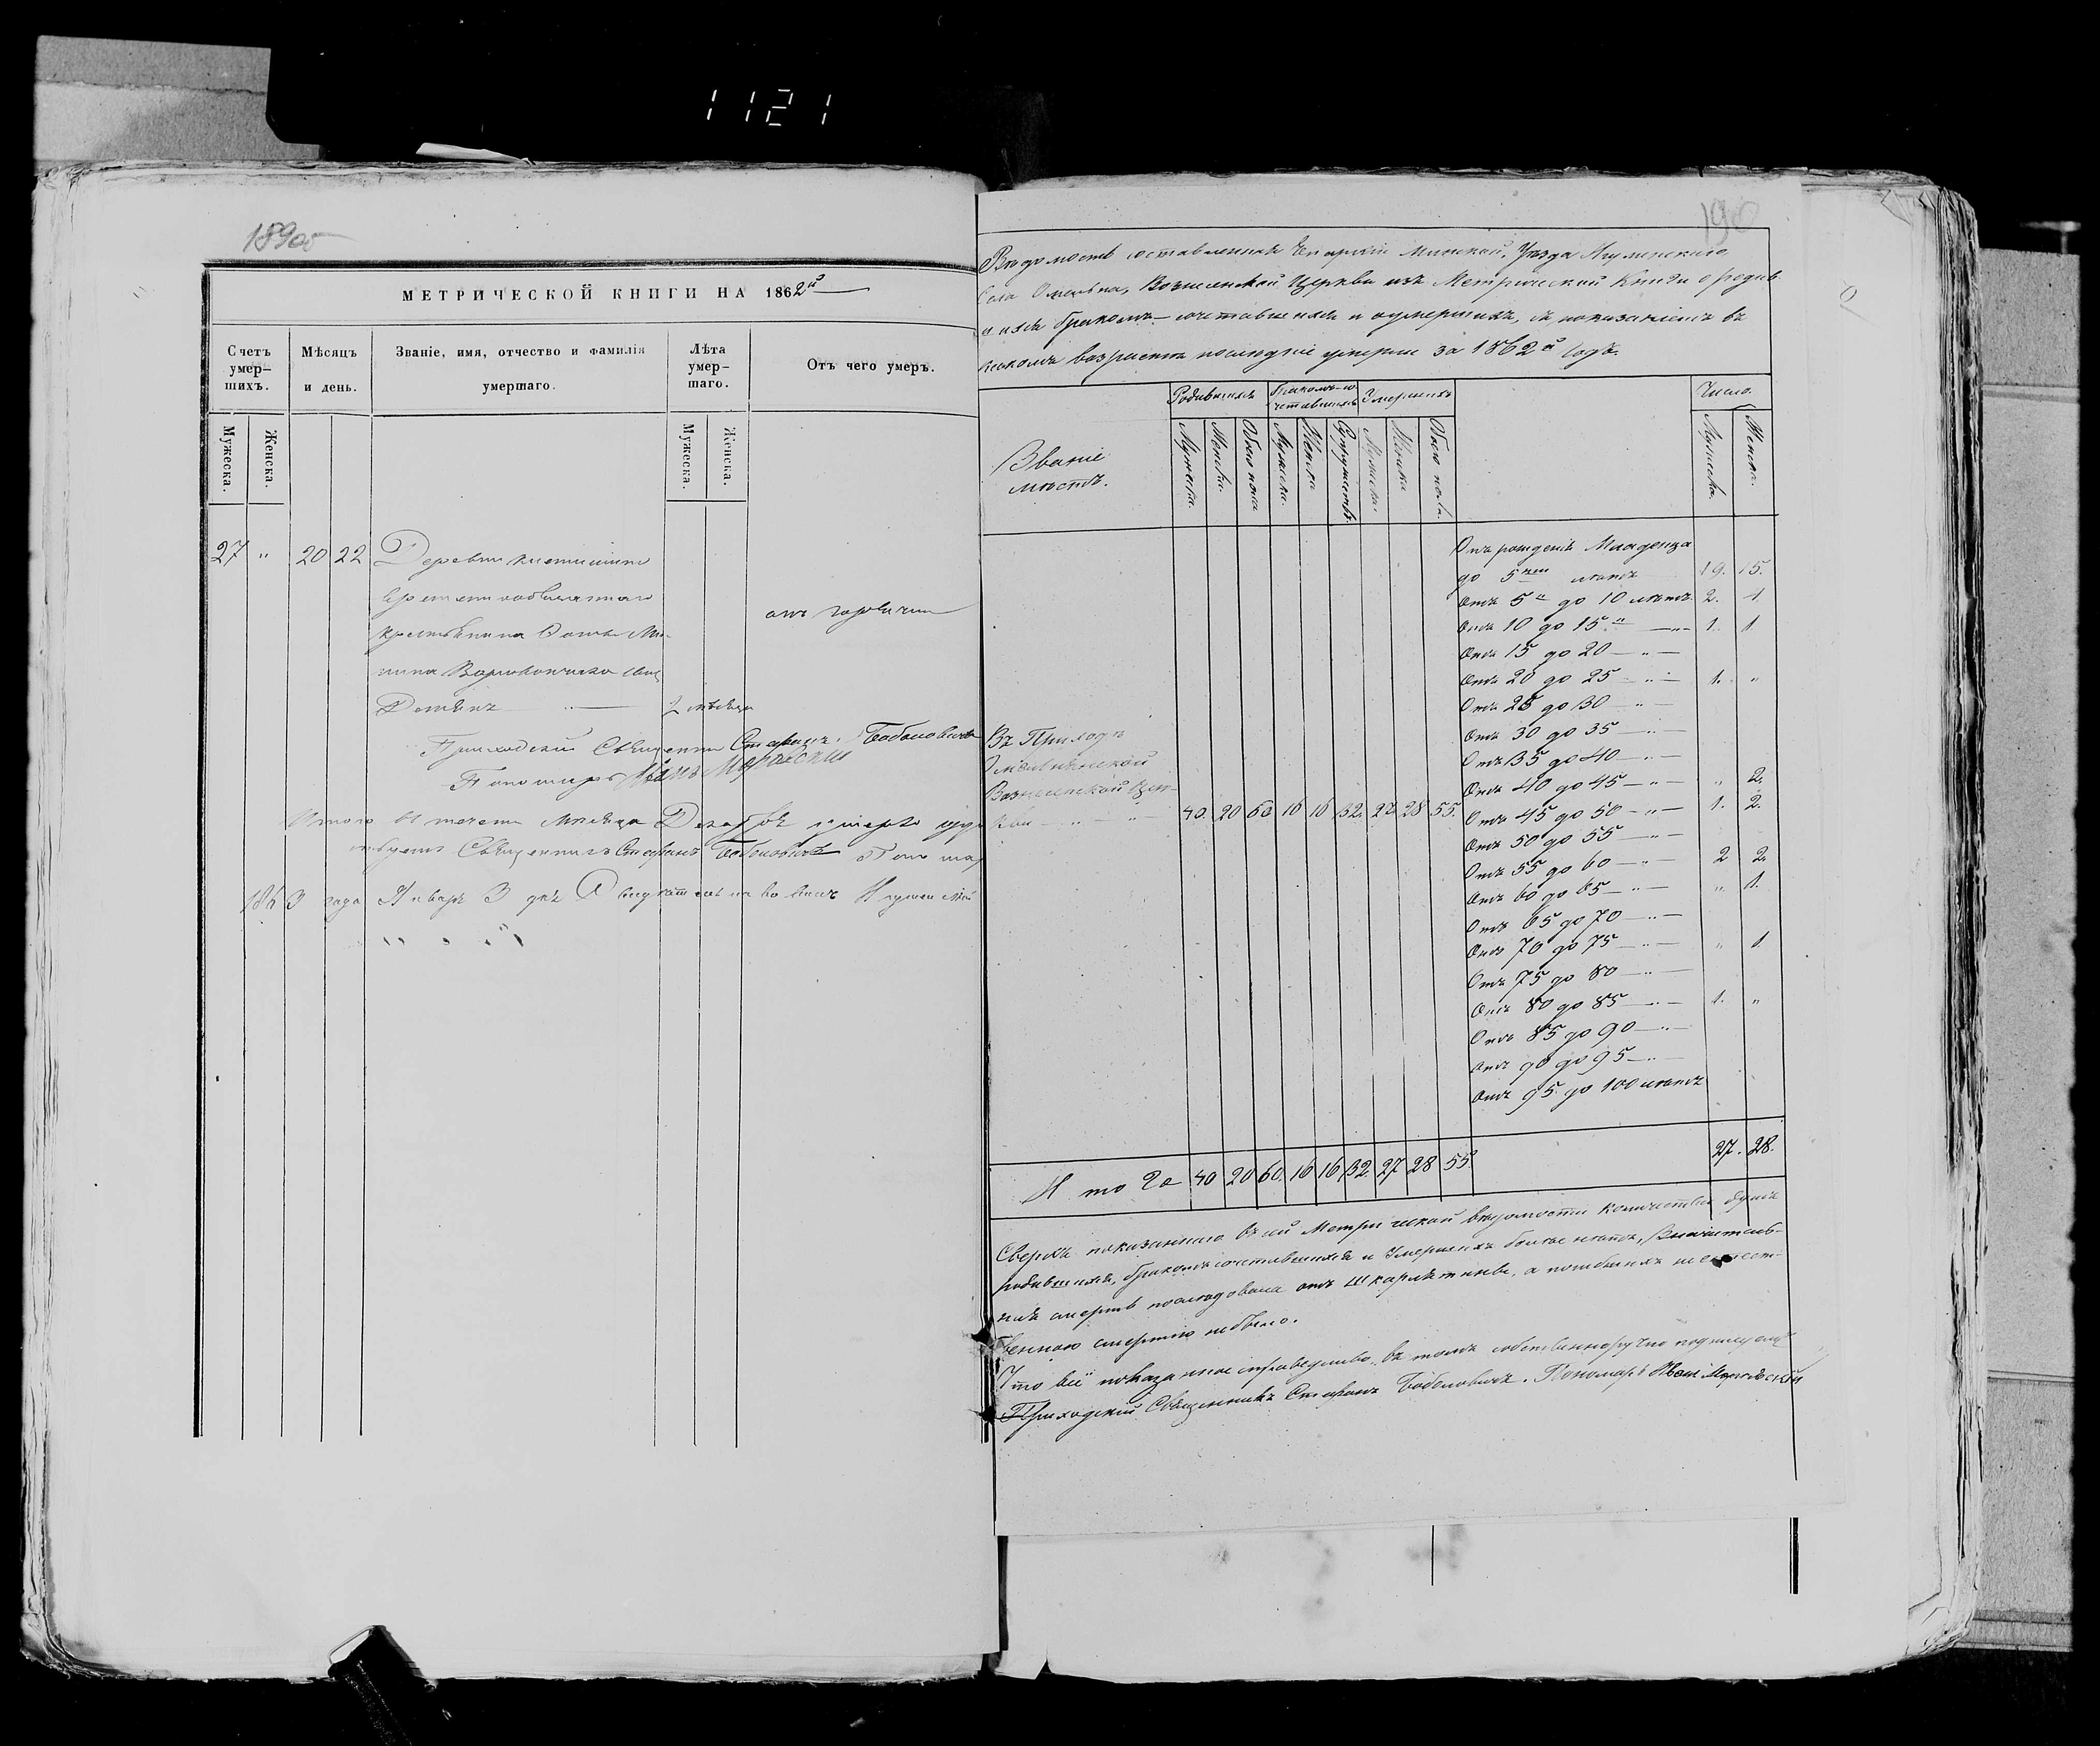 1121
189об
МЕТРИЧЕСКОЙ КНИГИ НА 1862й
Счетъ умер-шихъ.
Мѣсяцъ и день.
Званіе, имя, отчество и фамилія умершаго.
Лѣта умер-шаго.
Отъ чего умеръ.
Мужеска.
Женска.
Мужеска.
Женска.
27 " 20 22 Деревни
крестьянина
отъ горячки
2 мѣсяца
Приходскій Священникъ Стефанъ Боболовичъ
Пономарь Иванъ
Итого въ течение мѣсяца Декабря умерло
Священникъ Стефанъ Боболовичъ
1863 года Января 3 дня
190
Вѣдомость составленная Епархіи Минской, Уѣзда Игуменскаго
Села Омельна, Вознесенской Церкви изъ Метрической Книги о родив-
шихся бракомъ сочетавшихся и умершихъ, съ показаніемъ въ
какомъ возрастѣ послѣдніе умерли за 1862й годъ.
Званіе мѣстъ.
Родившихся
Бракомъ со-четавшихся
Умершихъ
Число.
Мужеска.
Женска.
Обоего пола
Мужеска.
Женска
Супружествъ.
Мужеска.
Женска
Обоего пола.
Мужеска.
Женска.
Отъ рожденія Младенца
до 5ти лѣтъ 19. 15.
Отъ 5и до 10 лѣтъ 2. 1
Отъ 10 до 15 — " — 1. 1
Отъ 15 до 20 — " —
Отъ 20 до 25 — " — 1. "
Отъ 25 до 30 — " —
Отъ 30 до 35 — " —
Отъ 35 до 40 — " —
Отъ 40 до 45 — " — " 2.
Отъ 45 до 50 — " — 1. 2.
Отъ 50 до 55 — " —
Отъ 55 до 60 — " — 2 2.
Отъ 60 до 65 — " — " 1.
Отъ 65 до 70 — " —
Отъ 70 до 75 — " — " 1
Отъ 75 до 80 — " —
Отъ 80 до 85 — " — 1. "
Отъ 85 до 90 — " —
Отъ 90 до 95 — " —
Отъ 95 до 100 лѣтъ
Въ Приходѣ
Омельнянской
Вознесенской Цер-
кви — " — 40. 20 60 16 16 32. 27 28 55.
Итого 40 20 60. 16 16 32. 27 28 55. 27. 28.
Сверхъ показаннаго въ сей Метрической вѣдомости количества душъ
родившихся, бракомъ сочетавшихся и Умершихъ болѣе нѣтъ,
смерть послѣдовала отъ Шкарлятины, а погибшихъ неестест-
венною смертію небыло.
Что всё показанное справедливо, въ томъ собственноручно подписуемся
Приходскій Священникъ Стефанъ Боболовичъ. Пономарь Иванъ